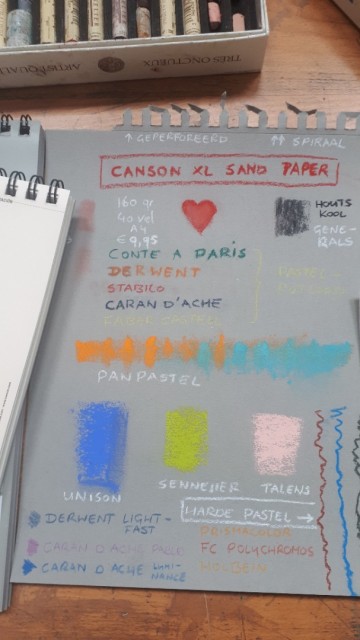 TRÈS ONCTUEUX
ARTIST QUALI
↑ GEPERFOREERD ↑↑ SPIRAAL
CANSON XL SAND PAPER
160 gr
40 vel
A4
€9,95
HOUTS
KOOL
GENE-
RALS
CONTE A PARIS
DERWENT
STABILO
CARAN D'ACHE
FABER CASTELL
PASTEL-
PANPASTEL
UNISON SENNELIER TALENS
HARDE PASTEL →
DERWENT LIGHT-
FAST
CARAN D'ACHE PABLO
CARAN D'ACHE LUMI-
NANCE
PRISMACOLOR
FC POLYCHROMOS
HOLBEIN